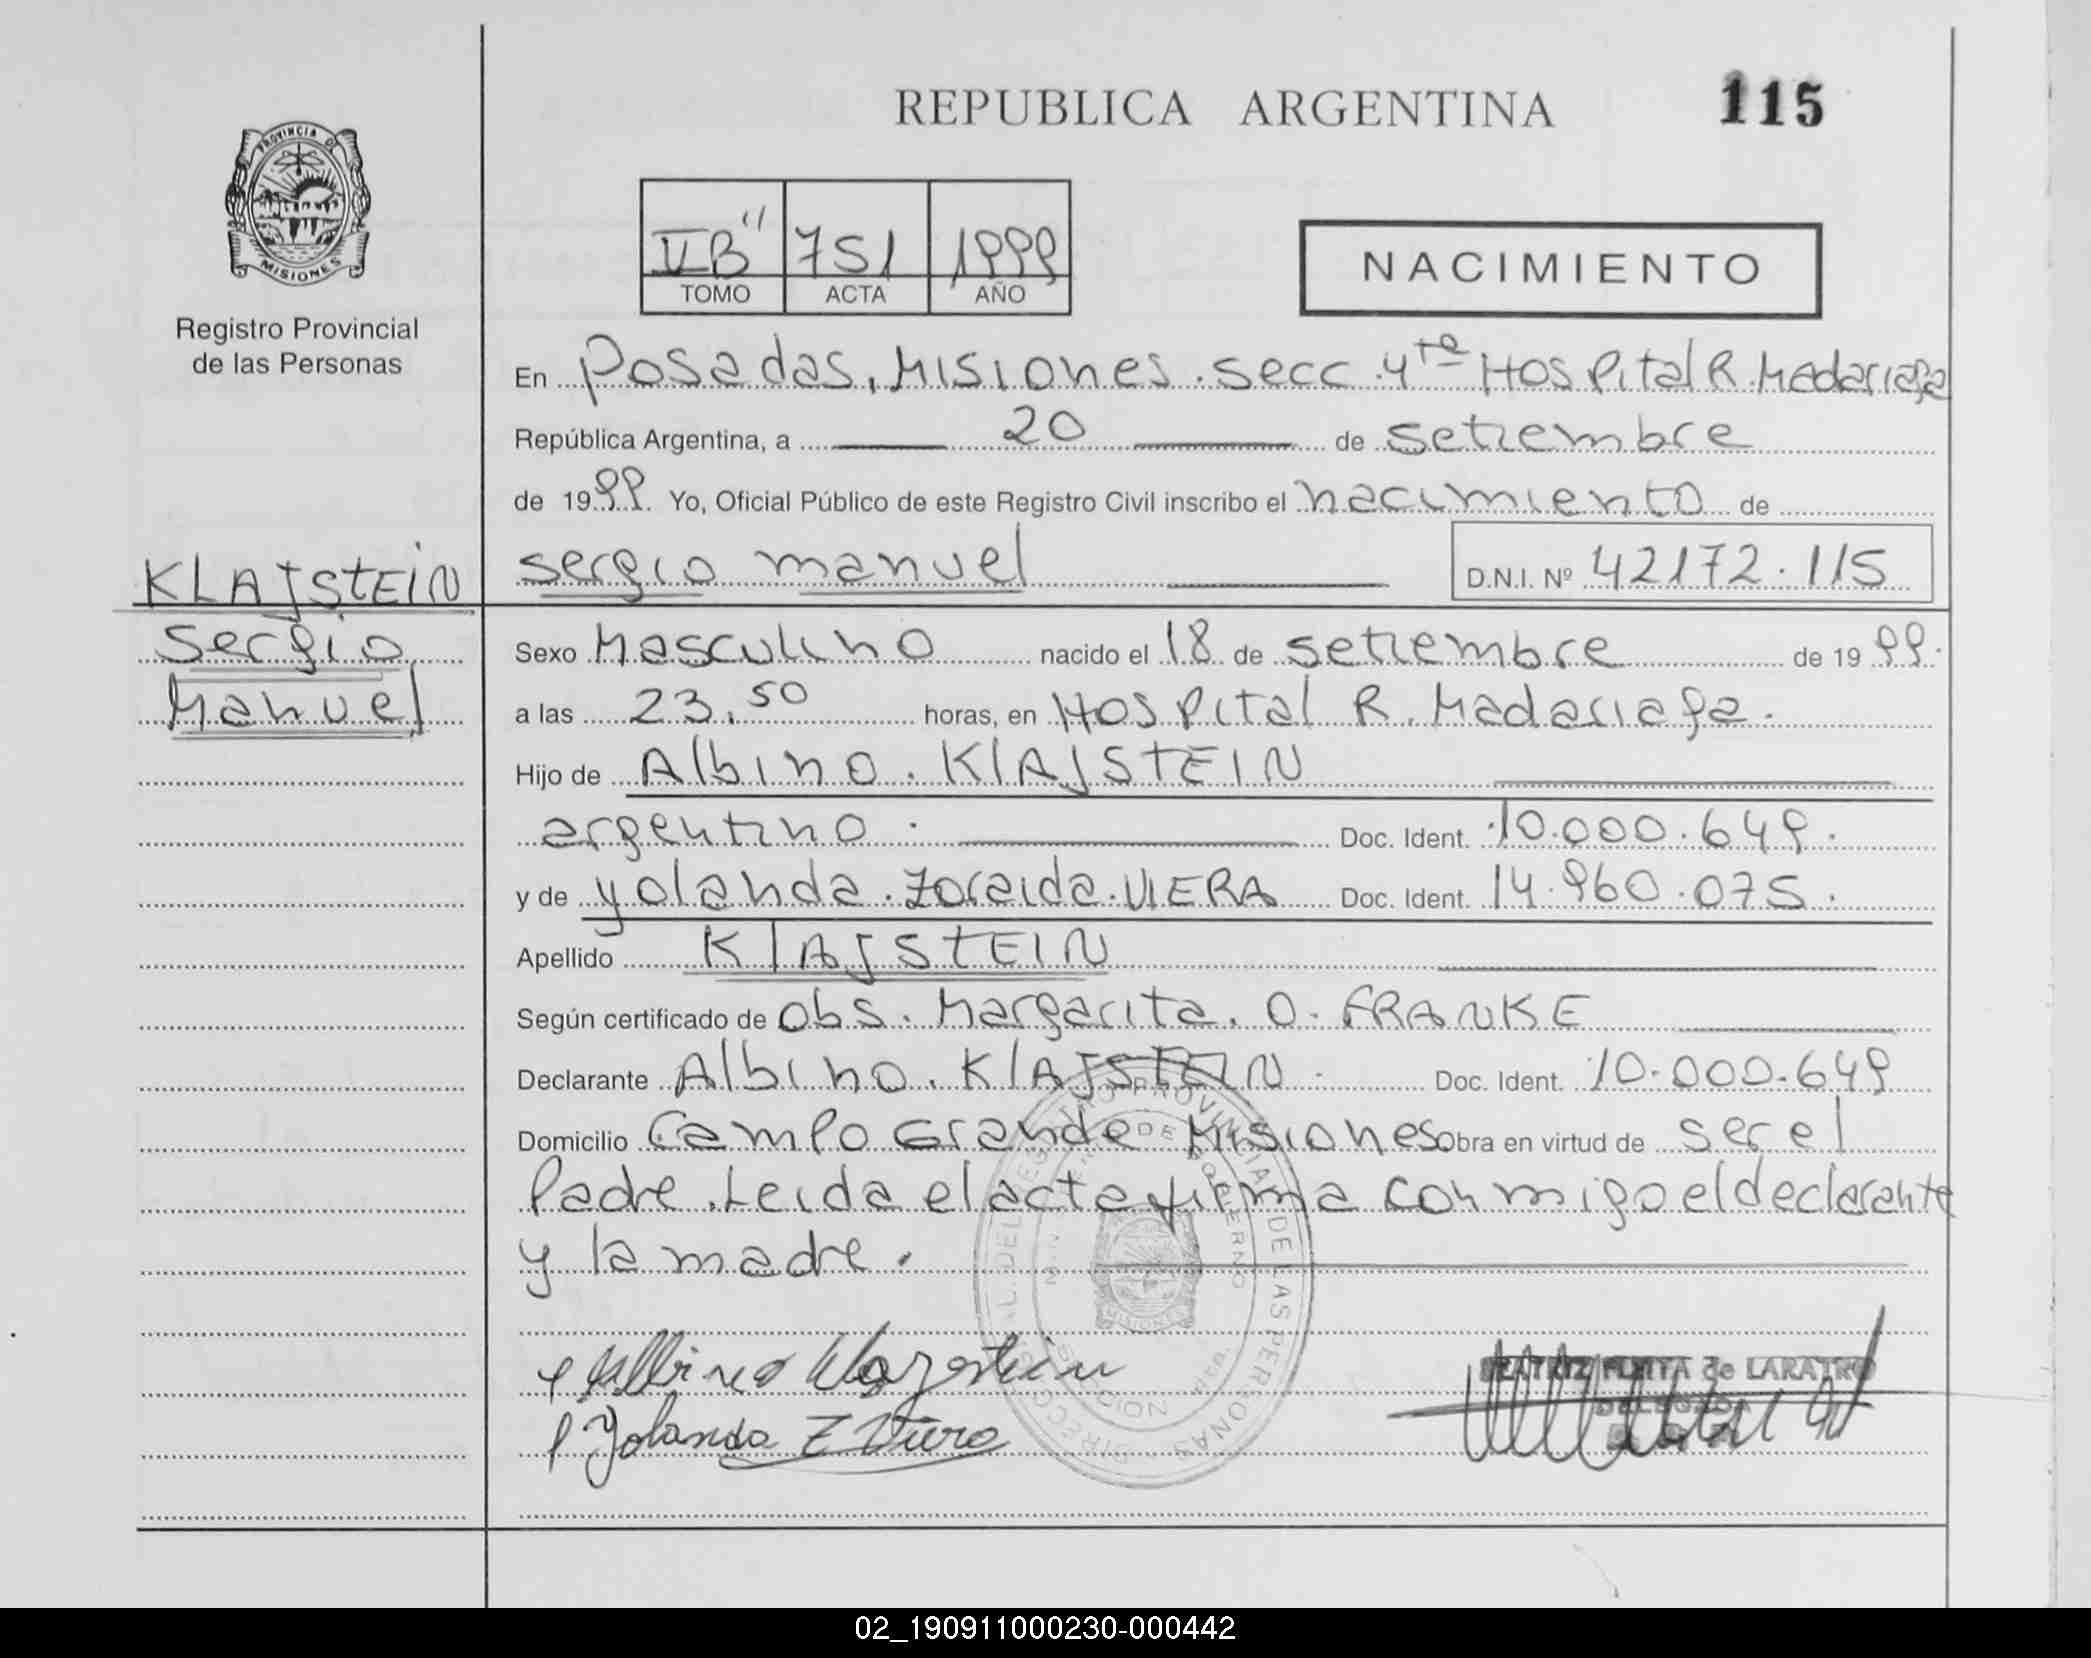 REPUBLICA ARGENTINA
115
PROVINCIA DE
MISIONES
Registro Provincial
de las Personas
VB" 751 1999
TOMO ACTA AÑO
NACIMIENTO
En Posadas, Misiones. Secc. 4ta Hospital R. Madariaga
República Argentina, a 20 de setiembre
de 1999. Yo, Oficial Público de este Registro Civil inscribo el nacimiento de
sergio manuel D.N.I. Nº 42172.115
KLAJSTEIN
Sergio
Manuel
Sexo Masculino nacido el 18 de setiembre de 1999.
a las 23.50 horas, en Hospital R. Madariaga.
Hijo de Albino. KlAJSTEIN
argentino. Doc. Ident. 10.000.649.
y de yolanda. Zoraida. VIERA Doc. Ident. 14.960.075.
Apellido KlAJSTEIN
Según certificado de Obs. Margarita. O. FRANKE
Declarante Albino. KlAJSTEIN. Doc. Ident. 10.000.649
Domicilio Campo Grande Misiones obra en virtud de ser el
Padre. Leida el acta firma conmigo el declarante
y la madre.
Albino Klajstein
Yolanda Z Viera
BEATRIZ de LARATRO
DELEGADA
02_190911000230-000442